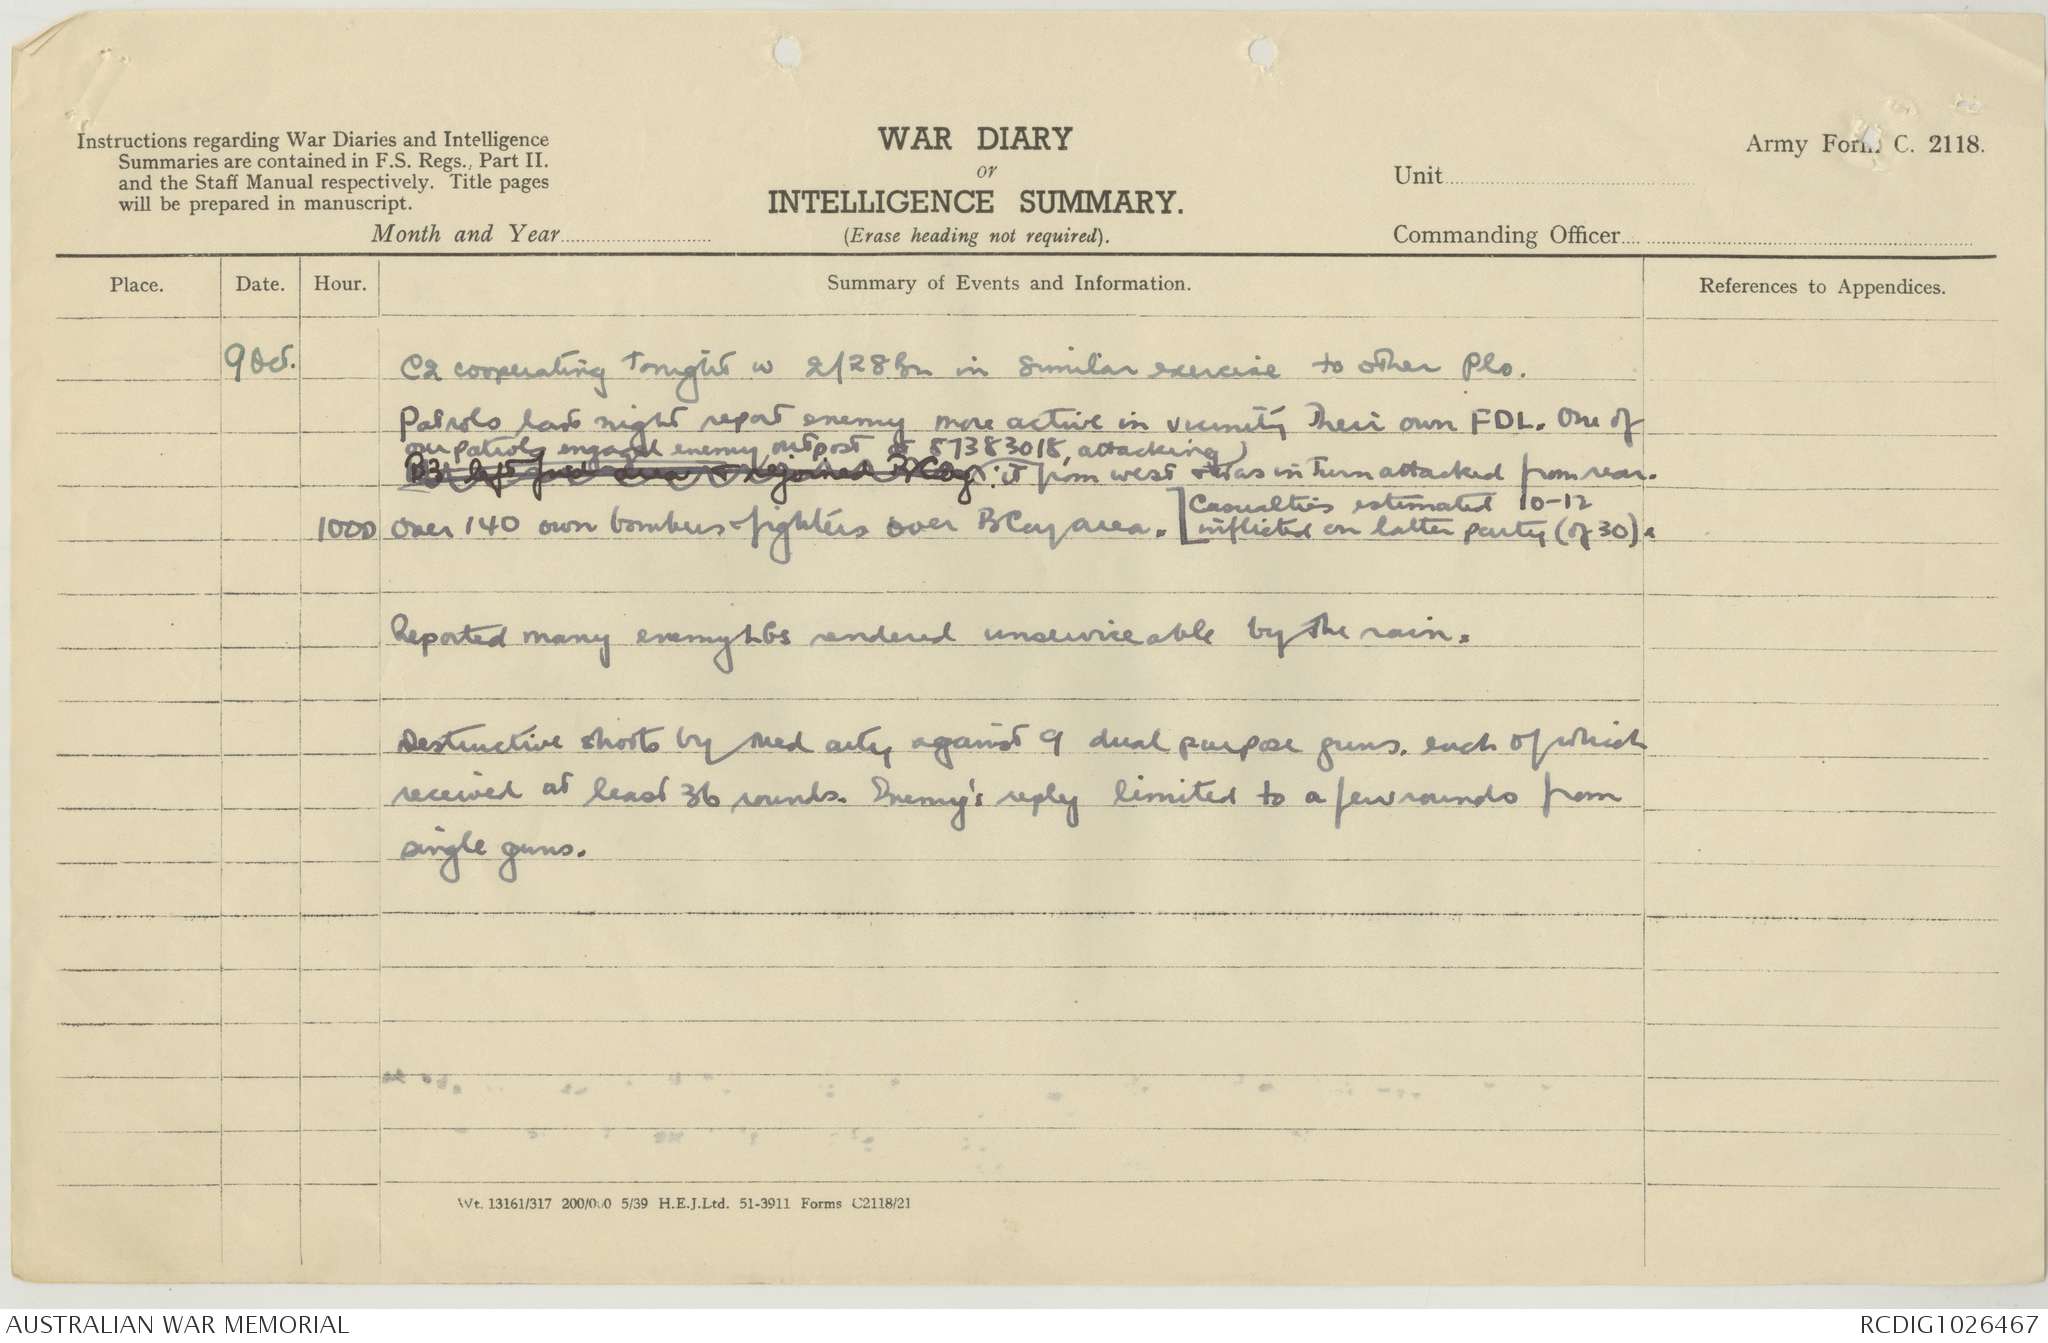 Instructions regarding War Diaries and Intelligence
Summaries are contained in F.S. Regs., Part II.
and the Staff Manual respectively. Title pages
will be prepared in manuscript.
Month and Year
WAR DIARY
or
INTELLIGENCE SUMMARY.
(Erase heading not required).
Army Form C. 2118.
Unit
Commanding Officer
Place. Date. Hour. Summary of Events and Information. References to Appendices.
9 Oct. C2 cooperating tonight w 2/28 Bn in similar exercise to other Pls.
Patrols last night report enemy more active in vicinity their own FDL. One of
our patrols engaged enemy outpost at 87383018, attacking
it from west & was in turn attacked from rear.
Casualties estimated 10-12
inflicted on latter party (of 30).
1000 Over 140 own bombers & fighters over B Coy area.
Reported many enemy LGs rendered unserviceable by the rain.
Destructive shoots by Med arty against 9 dual purpose guns, each of which
received at least 36 rounds. Enemy's reply limited to a few rounds from
single guns.
Wt. 13161/317 200/000 5/39 H.E.J.Ltd. 51-3911 Forms C2118/21
AUSTRALIAN WAR MEMORIAL
RCDIG1026467